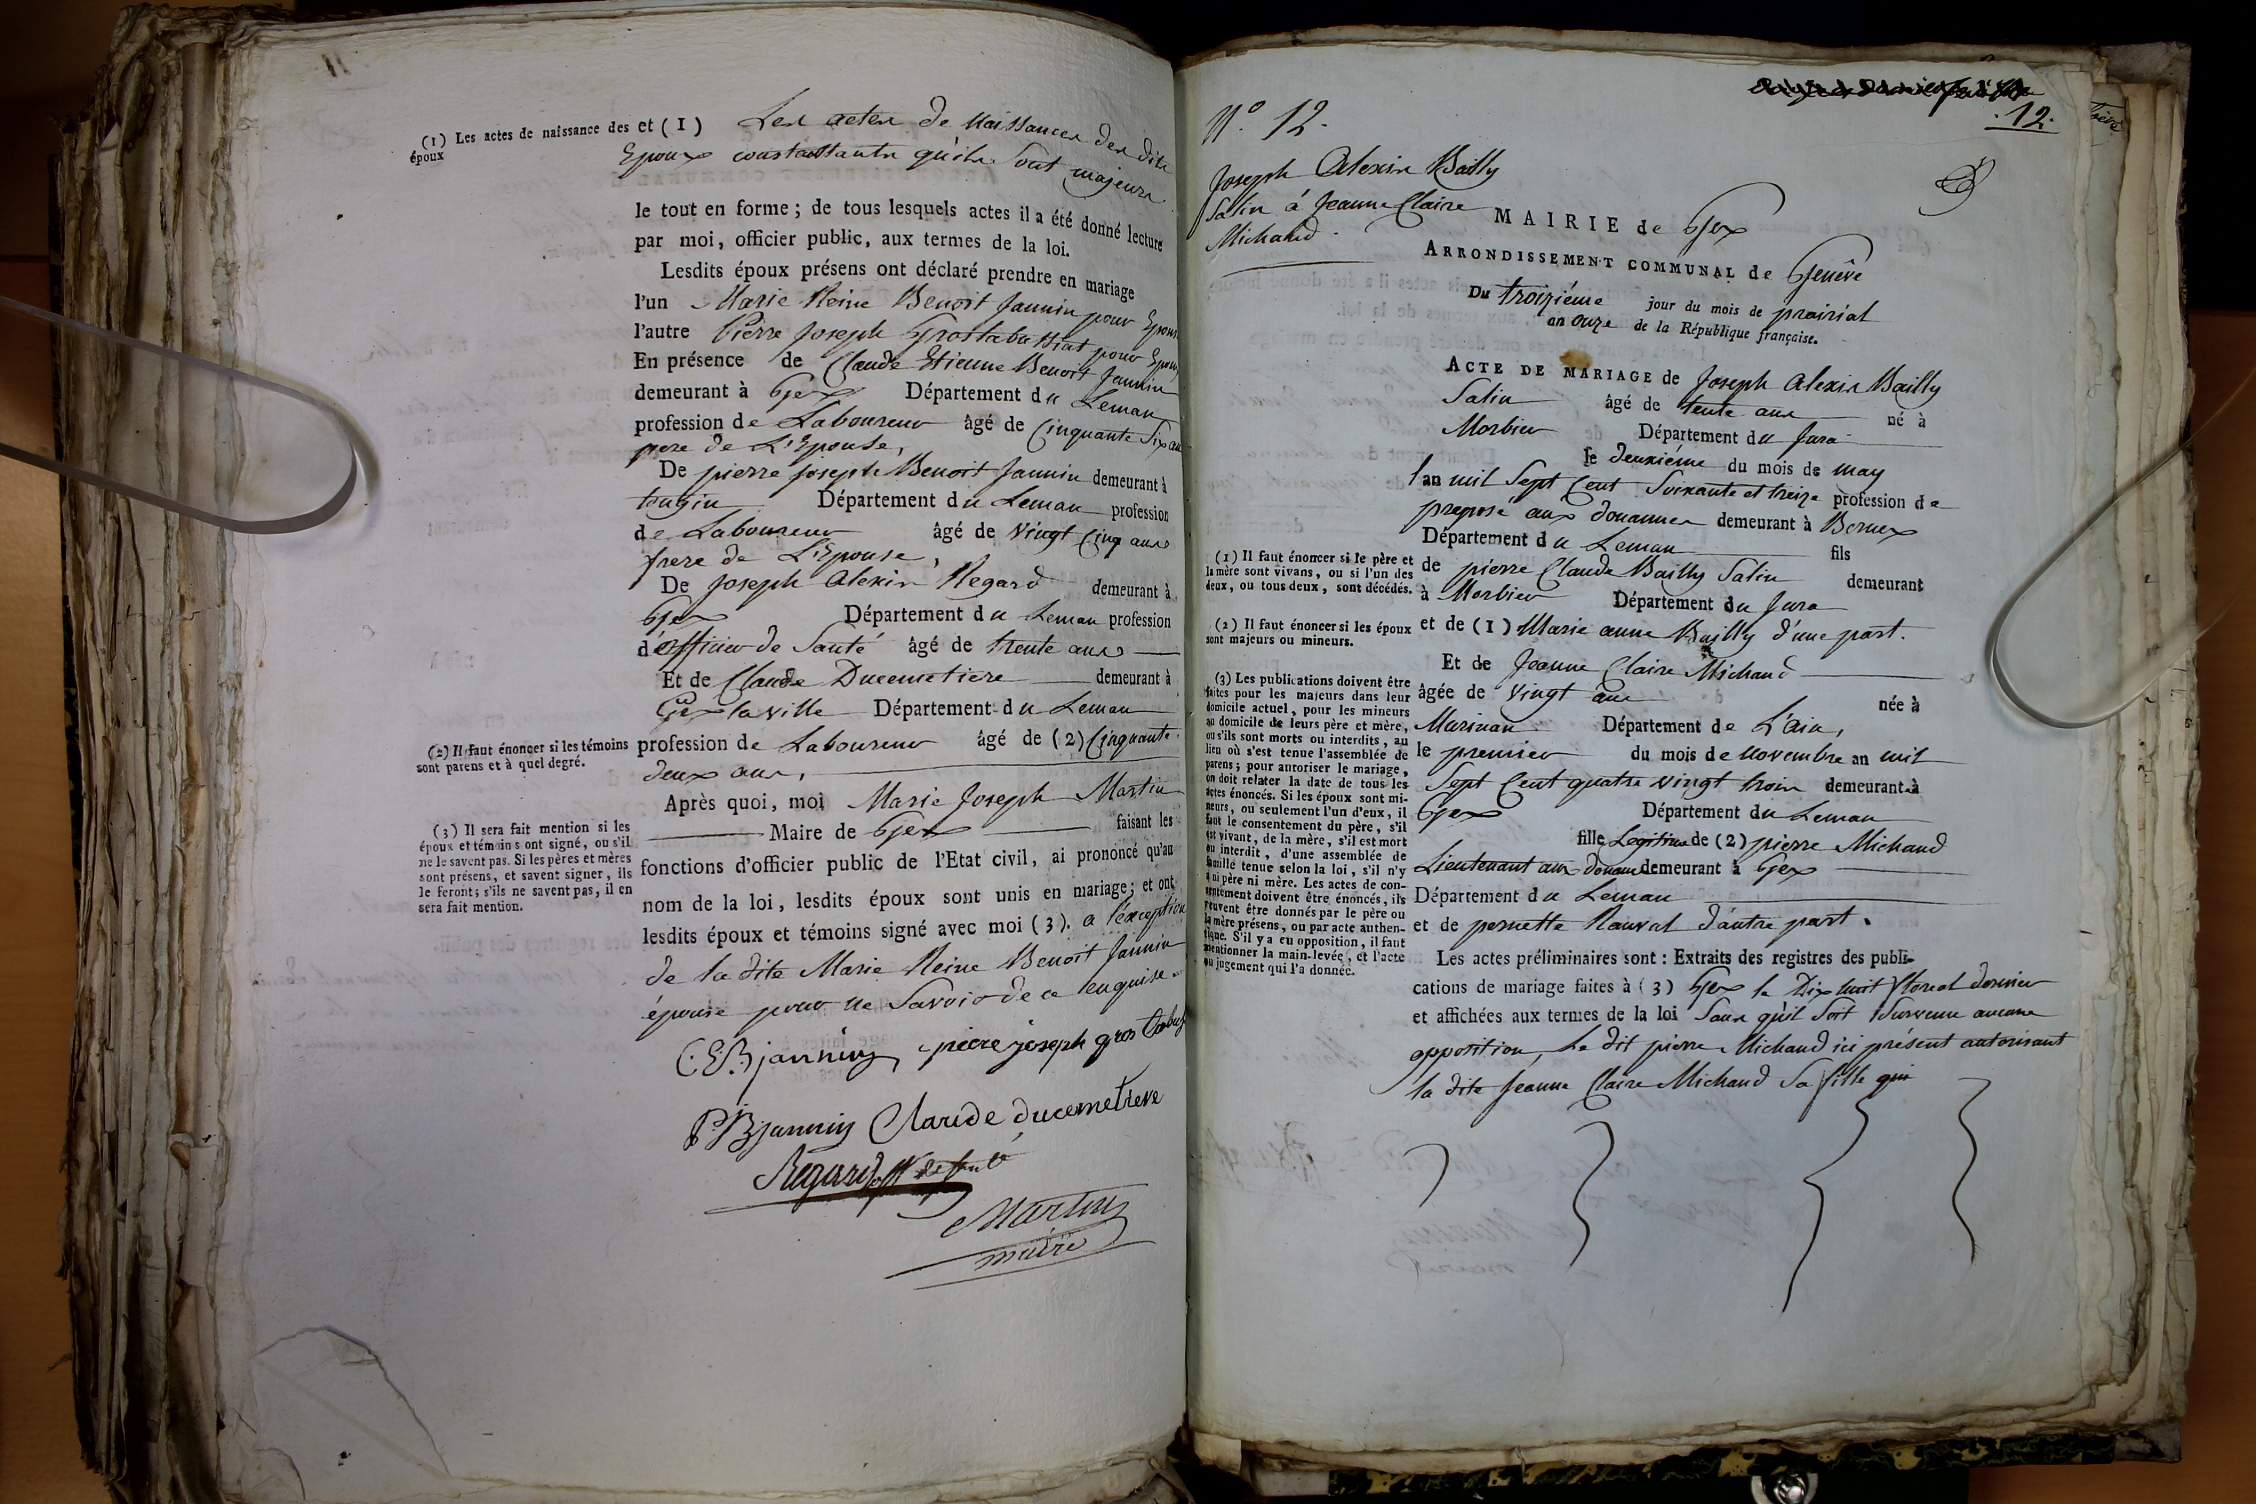 11
(1) Les actes de naissance des
époux
et (1) Les actes de Naissances des dits
Epoux constatants qu'ils sont majeurs
le tout en forme; de tous lesquels actes il a été donné lecture
par moi, officier public, aux termes de la loi.
Lesdits époux présens ont déclaré prendre en mariage
l'un Marie Reine Benoit Jannin pour Epouse
l'autre Pierre Joseph Grostabussiat pour Epoux
En présence de Claude Etienne Benoit Jannin
demeurant à Gex Département du Leman
profession de Laboureur âgé de Cinquante Six ans
pere de L'Epouse,
De pierre joseph Benoit Jannin demeurant à
tougin Département du Leman profession
de Laboureur âgé de Vingt Cinq ans
frere de L'Epouse,
De Joseph Alexis Regard demeurant à
Gex Département du Leman profession
d'officier de Santé âgé de trente ans
Et de Claude Ducemetiere demeurant à
Gex la ville Département du Leman
(2) Il faut énoncer si les témoins
sont parens et à quel degré.
profession de Laboureur âgé de (2) Cinquante
deux ans,
Après quoi, moi Marie Joseph Martin
Maire de Gex faisant les
(3) Il sera fait mention si les
époux et témoins ont signé, ou s'ils
ne le savent pas. Si les pères et mères
sont présens, et savent signer, ils
le feront; s'ils ne savent pas, il en
sera fait mention.
fonctions d'officier public de l'Etat civil, ai prononcé qu'au
nom de la loi, lesdits époux sont unis en mariage; et ont
lesdits époux et témoins signé avec moi (3). a l'exception
de la dite Marie Reine Benoit Jannin
épouse pour ne Savoir de ce enquise.
C. E. B jannin, pierre joseph gros tabus
P. J. B jannin Claude ducemetiere
Regard off de santé
Martin
maire
.12.
N.° 12.
Joseph Alexis Bailly
Salin à Jeanne Claire
Michaud.
MAIRIE de Gex
ARRONDISSEMENT COMMUNAL de Genêve
Du troizième jour du mois de prairial
an onze de la République française.
ACTE DE MARIAGE de Joseph Alexis Bailly
Salin âgé de trente ans né à
Morbier Département du Jura
le deuxiéme du mois de may
l'an mil Sept Cent Soixante et treize profession de
préposé aux douannes demeurant à Bernex
Département du Leman fils
(1) Il faut énoncer si le père et
la mère sont vivans, ou si l'un des
deux, ou tous deux, sont décédés.
de pierre Claude Bailly Salin demeurant
à Morbier Département du Jura
(2) Il faut énoncer si les époux
sont majeurs ou mineurs.
et de (1) Marie anne Bailly d'une part.
Et de Jeanne Claire Michaud
(3) Les publications doivent être
faites pour les majeurs dans leur
domicile actuel, pour les mineurs
au domicile de leurs père et mère,
ou s'ils sont morts ou interdits, au
lieu où s'est tenue l'assemblée de
parens; pour autoriser le mariage,
on doit relater la date de tous les
actes énoncés. Si les époux sont mi-
neurs, ou seulement l'un d'eux, il
faut le consentement du père, s'il
est vivant, de la mère, s'il est mort
ou interdit, d'une assemblée de
famille tenue selon la loi, s'il n'y
a ni père ni mère. Les actes de con-
sentement doivent être énoncés, ils
peuvent être donnés par le père ou
la mère présens, ou par acte authen-
tique. S'il y a eu opposition, il faut
mentionner la main-levée, et l'acte
ou jugement qui l'a donnée.
âgée de Vingt ans née à
Marinan Département de L'ain,
le premier du mois de novembre an mil
Sept Cent quatre vingt trois demeurant à
Gex Département du Leman
fille Legitime de (2) pierre Michaud
Lieutenant aux douanes demeurant à Gex
Département du Leman
et de pernette Nauval d'autre part.
Les actes préliminaires sont : Extraits des registres des publi-
cations de mariage faites à (3) Gex le Dix huit floreal dernier
et affichées aux termes de la loi Sans qu'il Soit Survenu aucune
opposition, Le dit pierre Michaud ici présent autorisant
la dite Jeanne Claire Michaud Sa fille qui